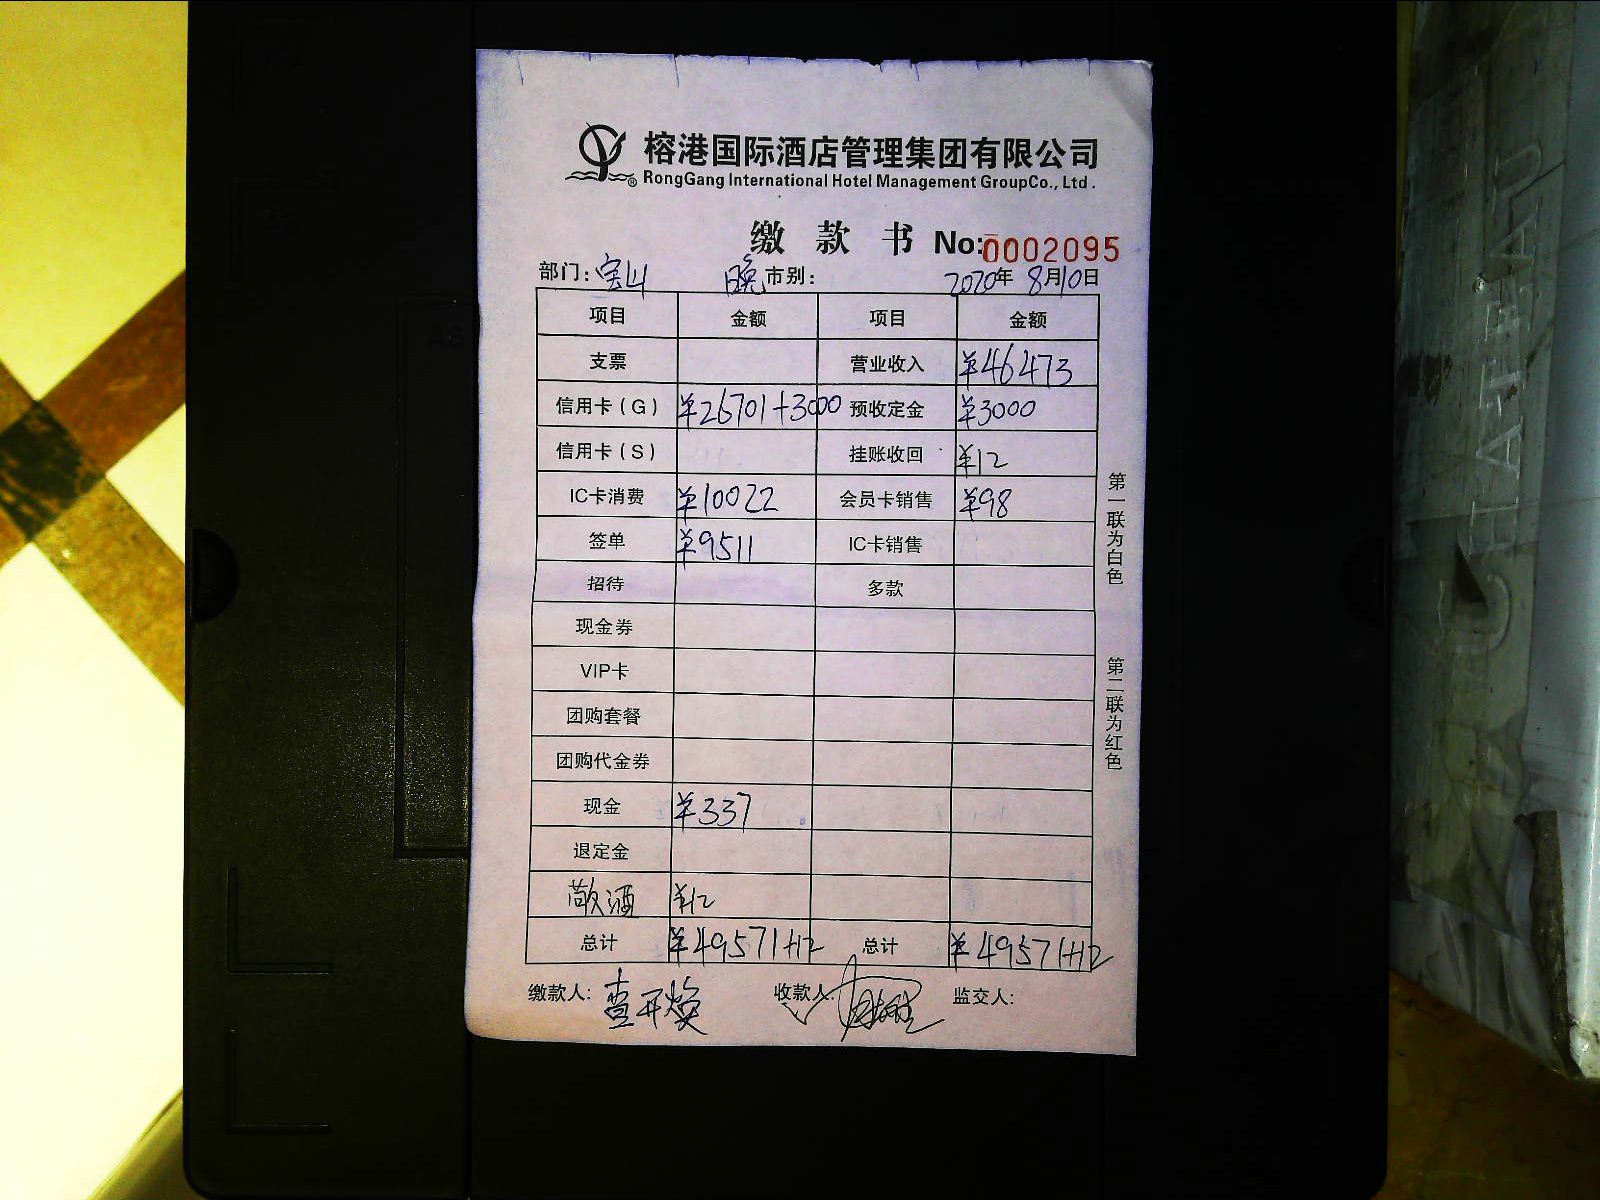 榕港国际酒店管理集团有限公司
RongGang International Hotel Management GroupCo., Ltd .
缴 款 书 No:0002095
部门: 宝山 晚 市别: 2020年 8月10日
项目 金额 项目 金额
支票 营业收入 ¥46473
信用卡(G) ¥26701+3000 预收定金 ¥3000
信用卡(S) 挂账收回 ¥12
IC卡消费 ¥10022 会员卡销售 ¥98
签单 ¥9511 IC卡销售
招待 多款
现金券
VIP卡
团购套餐
团购代金券
现金 ¥337
退定金
酒 ¥12
总计 ¥49571+12 总计 ¥49571+12
缴款人: 查开焕 收款人: 监交人:
第一联为白色
第二联为红色